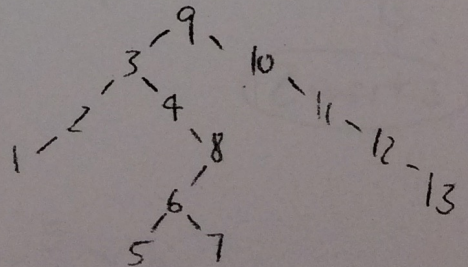 9
3 10
2 4 11
1 8 12
6 13
5 7